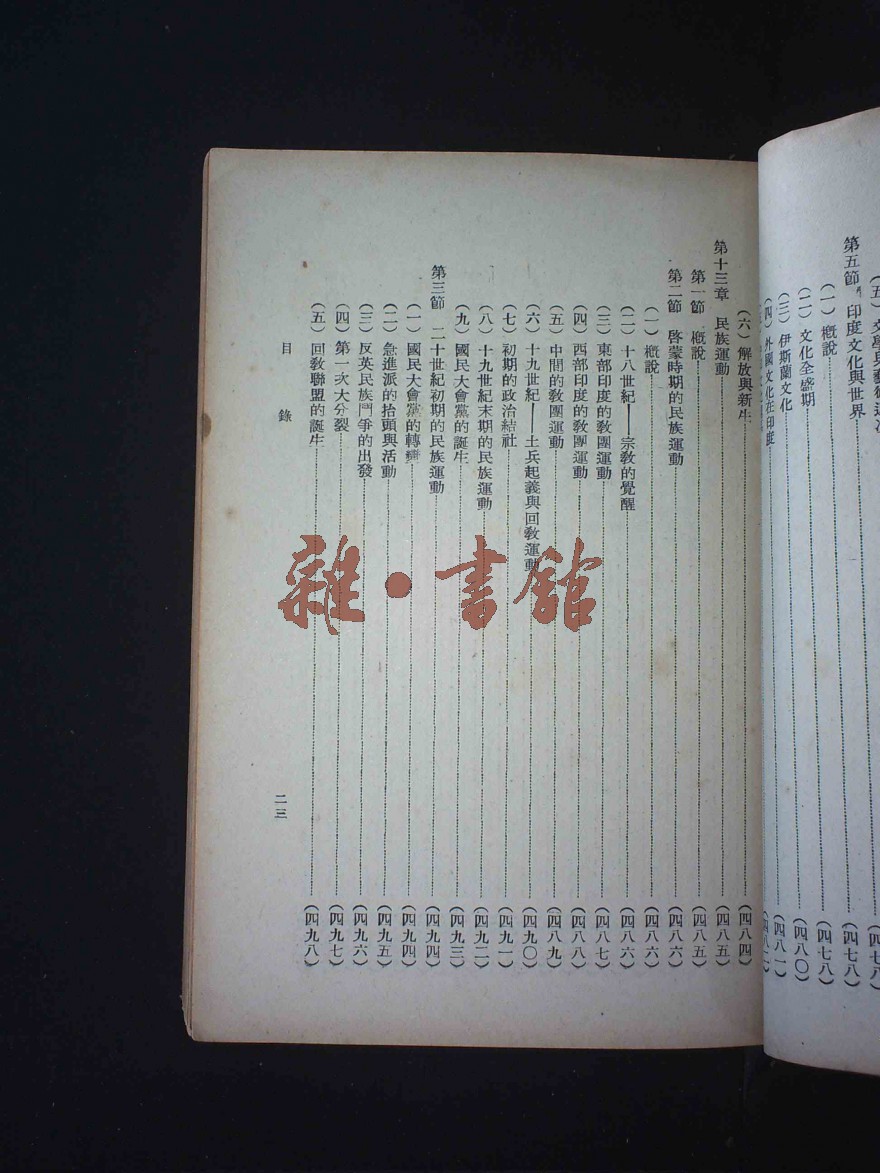 第五節 印度文化與世界……(四七八)
(一)概說……(四七八)
(二)文化全盛期……(四八〇)
(三)伊斯蘭文化……(四八一)
(四)外國文化在印度
(六)解放與新生……(四八四)
第十三章 民族運動……(四八五)
第一節 概說……(四八五)
第二節 啓蒙時期的民族運動……(四八六)
(一)概說……(四八六)
(二)十八世紀——宗教的覺醒……(四八六)
(三)東部印度的教團運動……(四八七)
(四)西部印度的教團運動……(四八八)
(五)中間的教團運動……(四八九)
(六)十九世紀——土兵起義與回教運動……(四九〇)
(七)初期的政治結社……(四九一)
(八)十九世紀末期的民族運動……(四九二)
(九)國民大會黨的誕生……(四九三)
第三節 二十世紀初期的民族運動……(四九四)
(一)國民大會黨的轉變……(四九四)
(二)急進派的抬頭與活動……(四九五)
(三)反英民族鬥爭的出發……(四九六)
(四)第一次大分裂……(四九七)
(五)回教聯盟的誕生……(四九八)
目錄
二三
雜·書館